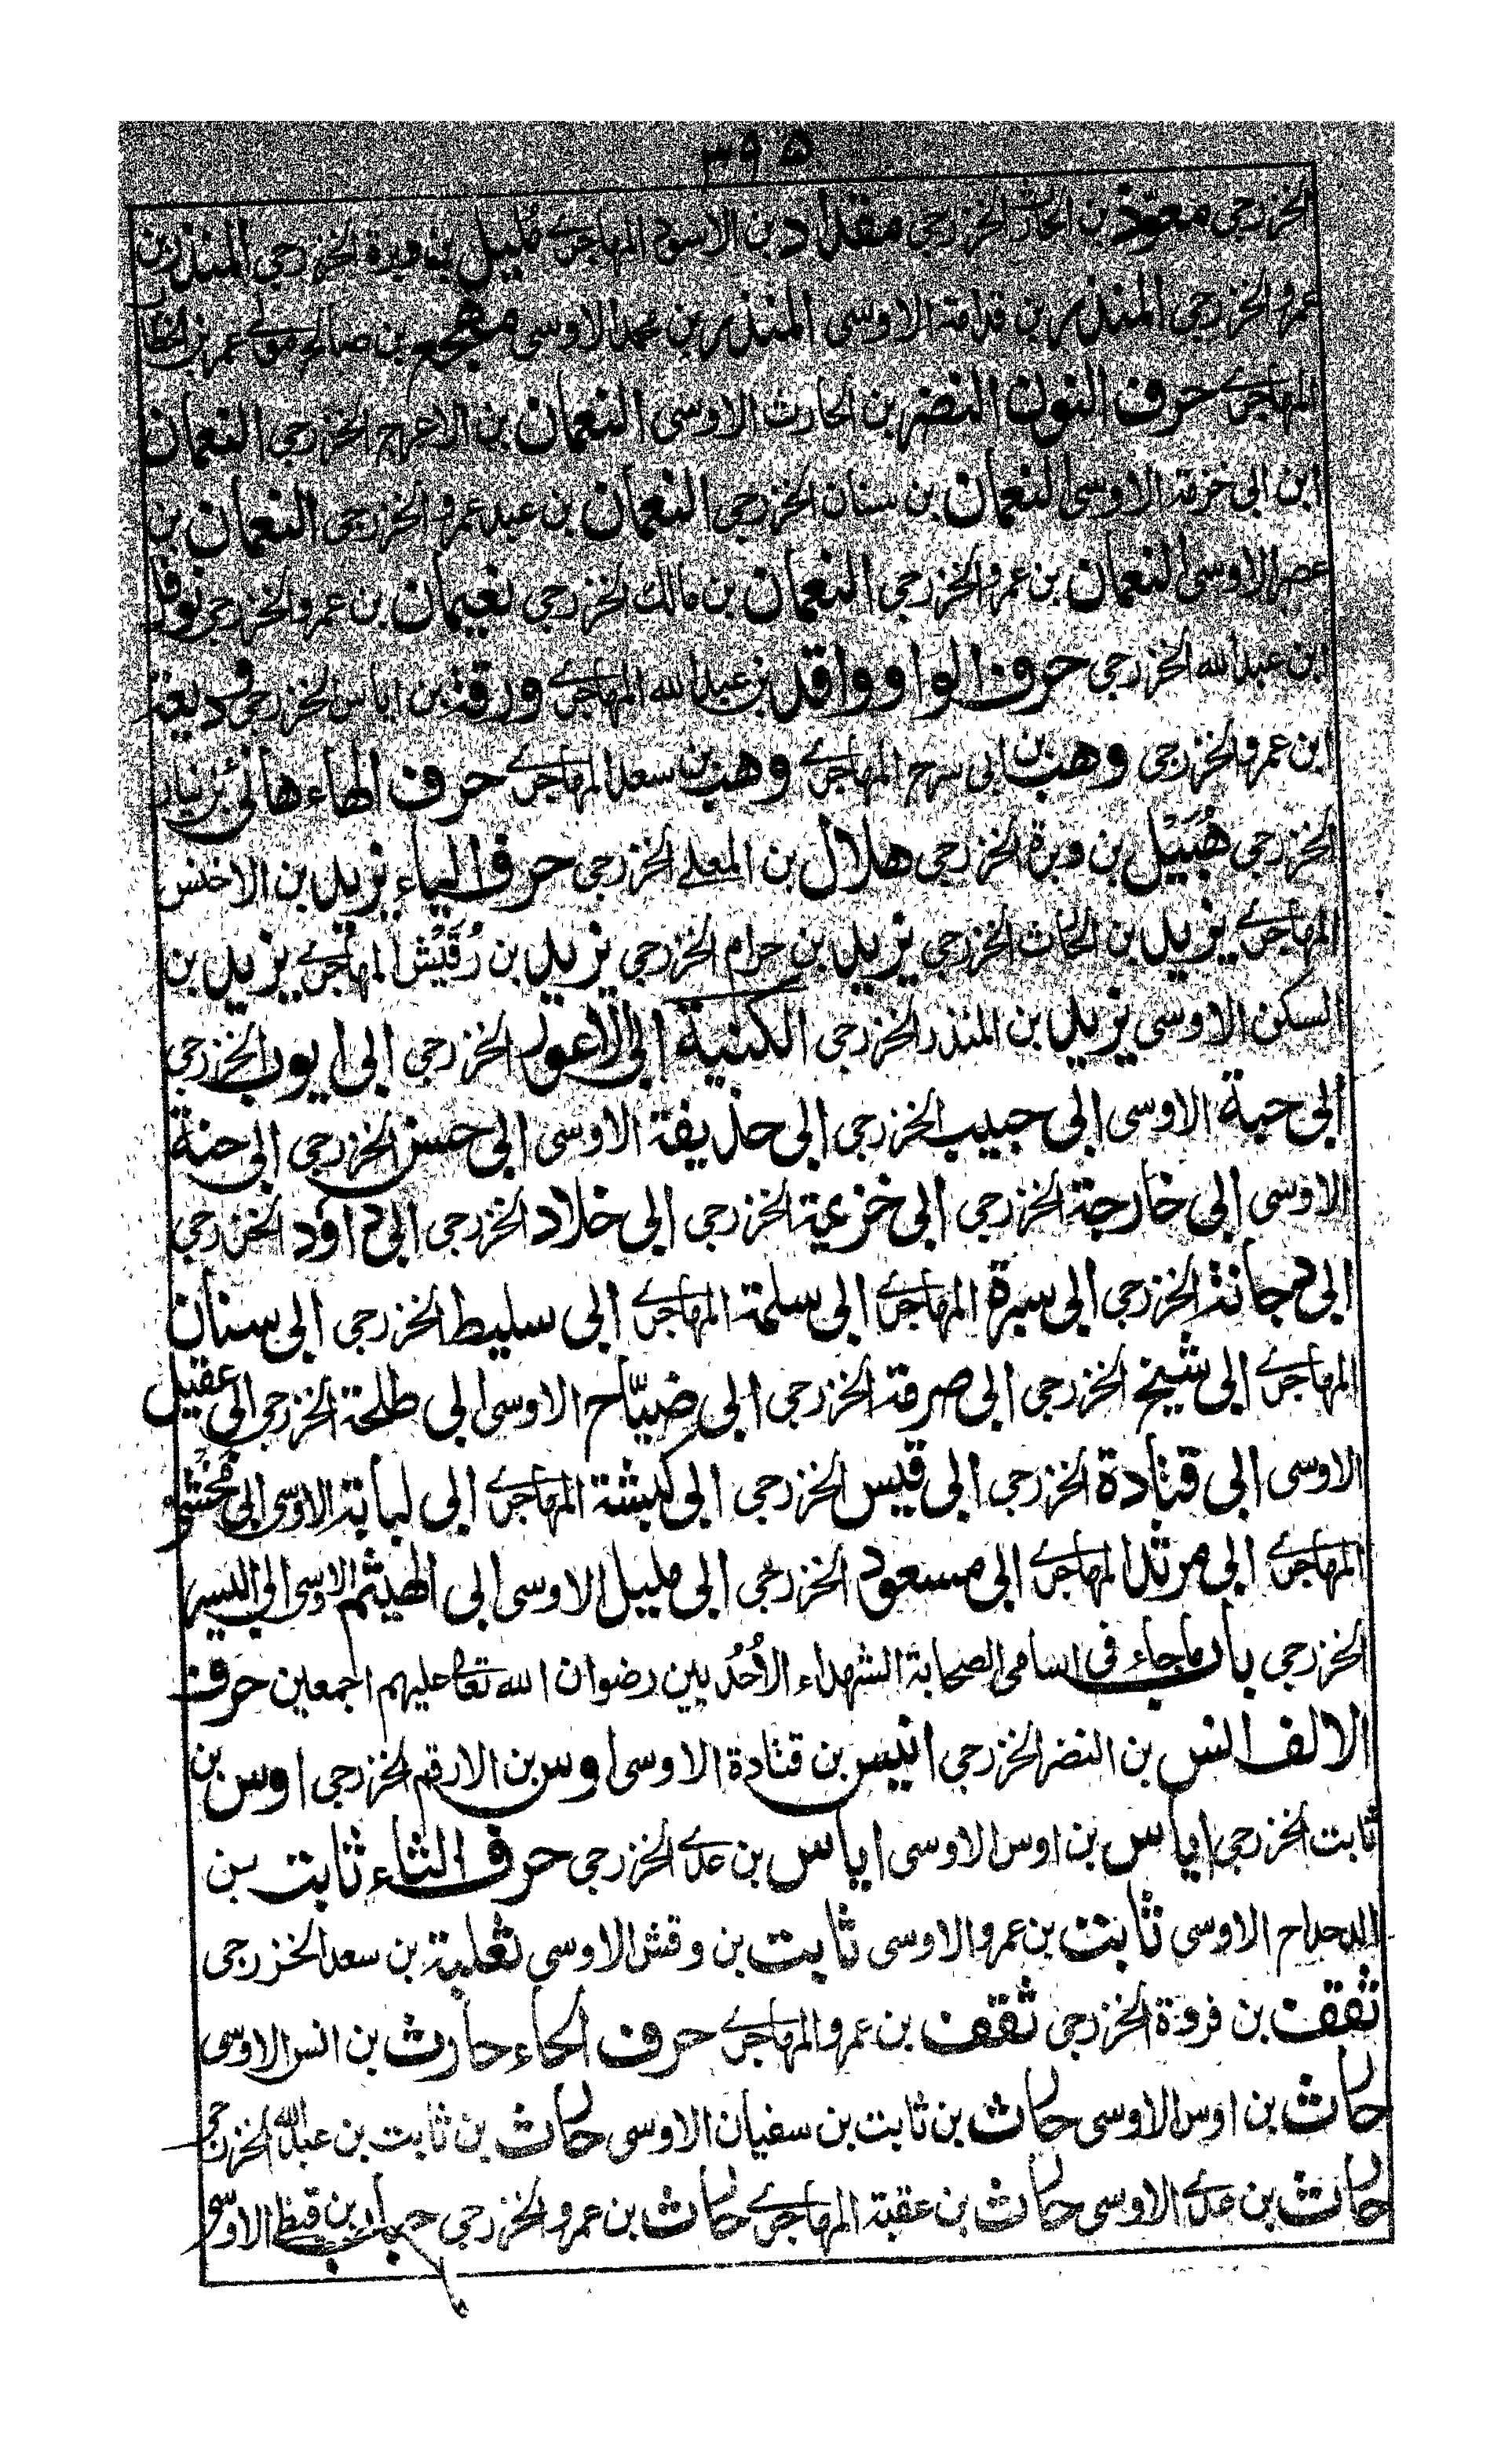 ٣٩٥
الخزرجي معوّذ بن الحارث الخزرجي مقداد بن الاسود المهاجرى مُليل بن وبرة الخزرجي المنذر بن
عمرو الخزرجي المنذر بن قدامة الاوسى المنذر بن محمد الاوسى مهجع بن صالح مولى عمر بن الخطاب
المهاجرى حرف النون النضر بن الحارث الاوسى النعمان بن الاعرج الخزرجي النعمان
ابن ابى خزمة الاوسى النعمان بن سنان الخزرجي النعمان بن عبد عمرو الخزرجى النعمان بن
عصر الاوسى النعمان بن عمرو الخزرجي النعمان بن مالك الخزرجى نعيمان بن عمرو الخزرجى نوفل
ابن عبد الله الخزرجى حرف الواو واقد بن عبد الله المهاجرى ورقة بن اياس الخزرجى وديعة
ابن عمرو الخزرجى وهب بن ابى سرح المهاجرى وهب بن سعد المهاجرى حرف الهاء هانئ بن نيار
الخزرجى هُبَيْل بن وبرة الخزرجى هلال بن المعلى الخزرجى حرف الياء يزيد بن الاخنس
المهاجرى يزيد بن الحارث الخزرجى يزيد بن حرام الخزرجى يزيد بن رُقَيْش المهاجرى يزيد بن
السكن الاوسى يزيد بن المنذر الخزرجى الكنية ابى الاعور الخزرجى ابى ايوب الخزرجى
ابى حبة الاوسى ابى حبيب الخزرجى ابى حذيفة الاوسى ابى حسن الخزرجى ابى حنة
الاوسى ابى خارجة الخزرجى ابى خزيمة الخزرجى ابى خلاد الخزرجى ابى داؤد الخزرجى
ابى دجانة الخزرجى ابى سبرة المهاجرى ابى سلمة المهاجرى ابى سليط الخزرجى ابى سنان
المهاجرى ابى شيخ الخزرجى ابى صرمة الخزرجى ابى ضيّاح الاوسى ابى طلحة الخزرجى ابى عقيل
الاوسى ابى قتادة الخزرجى ابى قيس الخزرجى ابى كبشة المهاجرى ابى لبابة الاوسى ابى مخشى
المهاجرى ابى مرثد المهاجرى ابى مسعود الخزرجى ابى مليل الاوسى ابى الهيثم الاوسى ابى اليسر
الخزرجى باب ما جاء فى اسامى الصحابة الشهداء الاُحُديين رضوان الله تعا عليهم اجمعين حرف
الالف انس بن النضر الخزرجى انيس بن قتادة الاوسى اوس بن الارقم الخزرجى اوس بن
ثابت الخزرجى اياس بن اوس الاوسى اياس بن عدى الخزرجى حرف الثاء ثابت بن
الدحداح الاوسى ثابت بن عمرو الاوسى ثابت بن وقش الاوسى ثعلبة بن سعد الخزرجى
ثقف بن فروة الخزرجى ثقف بن عمرو المهاجرى حرف الحاء حارث بن انس الاوسى
حارث بن اوس الاوسى حارث بن ثابت بن سفيان الاوسى حارث بن ثابت بن عبد الله الخزرجى
حارث بن عدى الاوسى حارث بن عقبة المهاجرى حارث بن عمرو الخزرجى حباب بن قيظى الاوسى